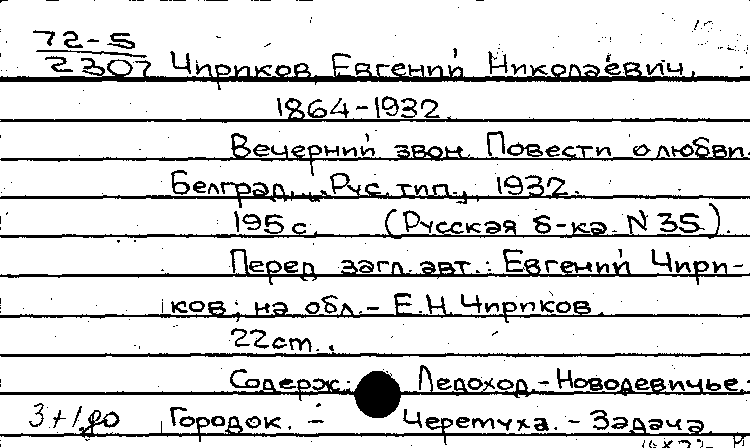 72-5
2307 Чириков, Евгений Николаевич,
1864-1932.
Вечерний звон. Повести о любви.
Белград, "Рус. тип.", 1932.
195 с. (Русская б-ка. N 35).
Перед загл. авт.: Евгений Чири-
ков; на обл. - Е.Н. Чириков.
22 cm.
Содерж: Ледоход. - Новодевичье. -
3+1 до Городок. - Черемуха. - Задача.